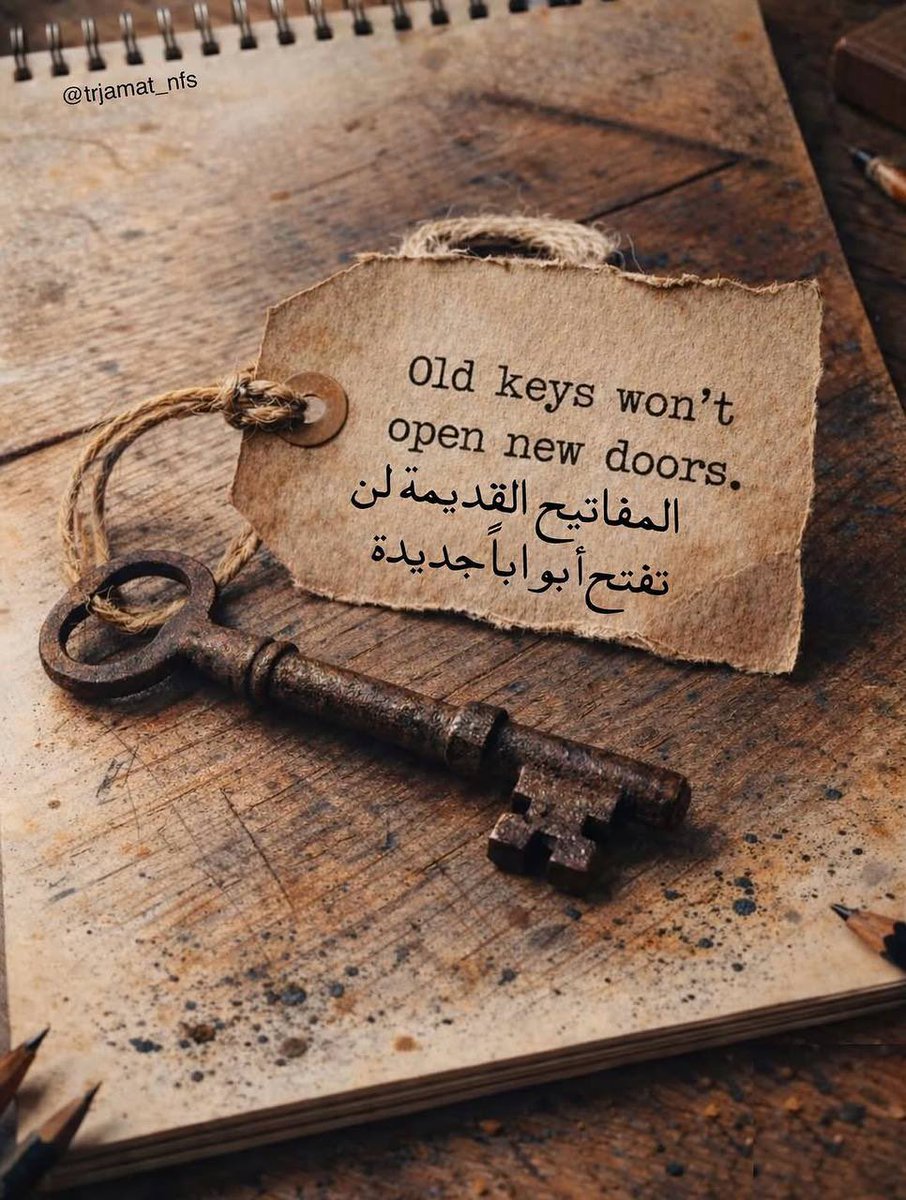 @trjamat_nfs
Old keys won't
open new doors.
المفاتيح القديمة لن
تفتح أبواباً جديدة